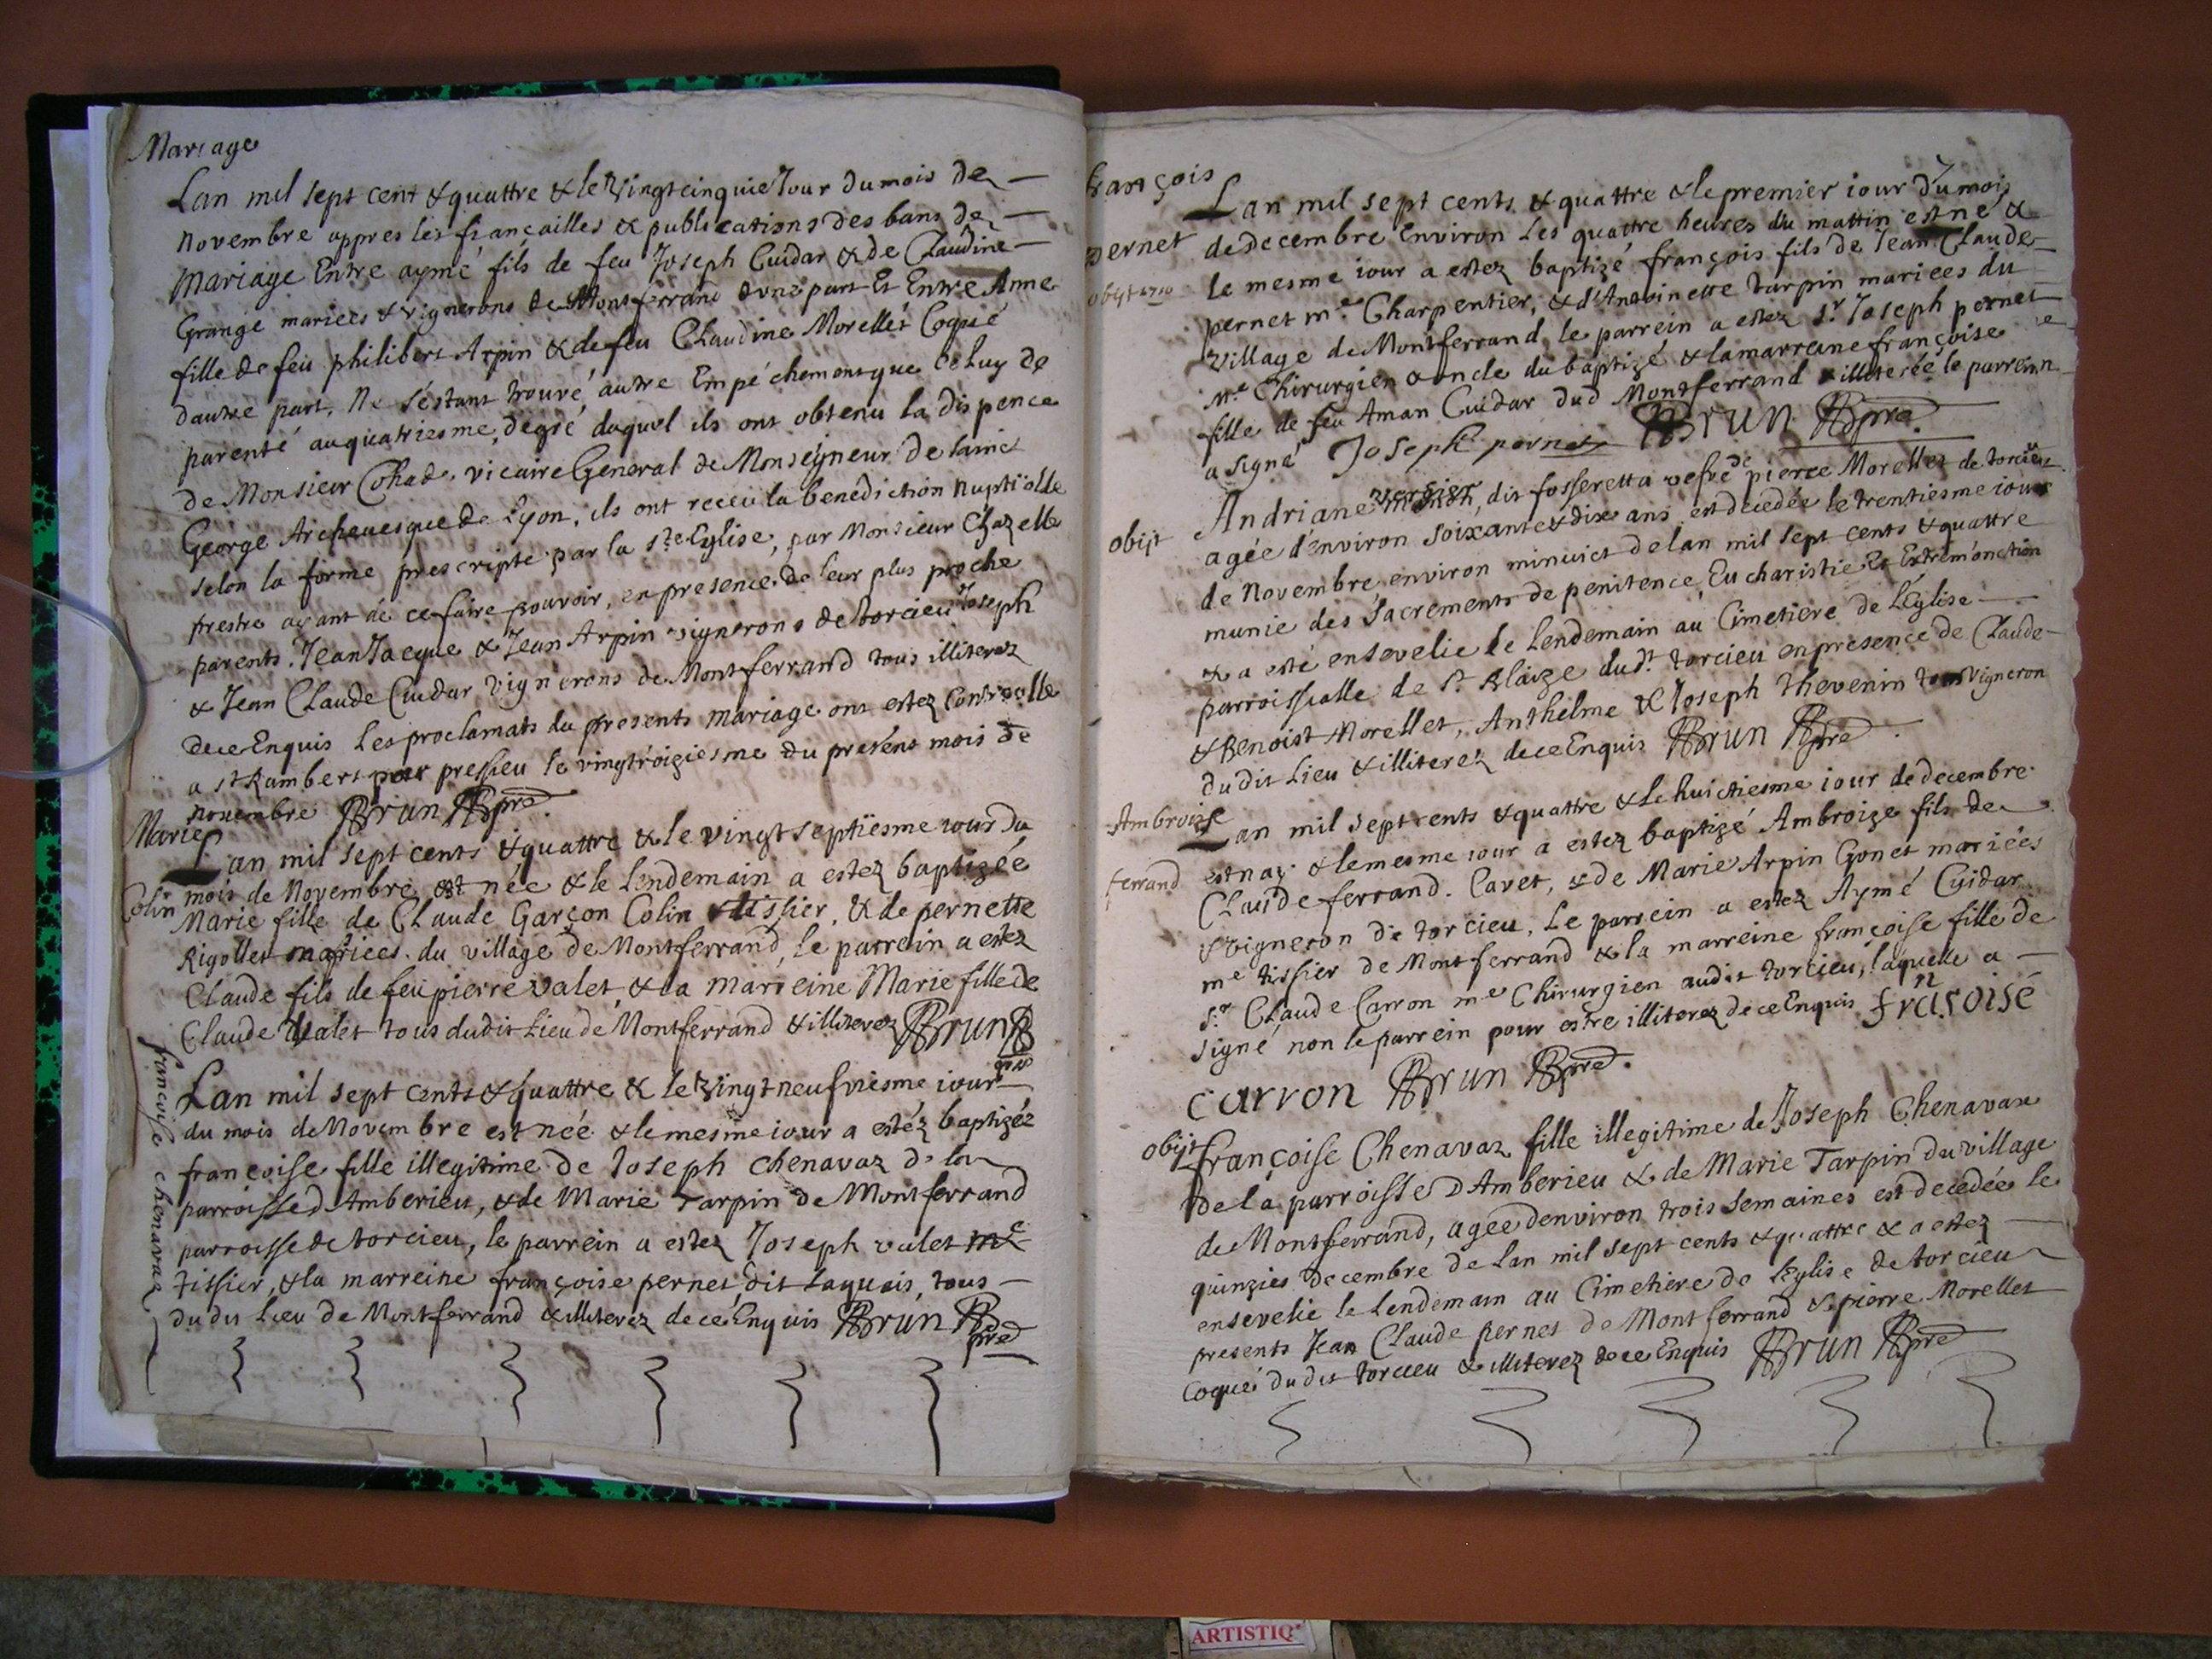 Mariage
Lan mil sept cent & quattre & le vingt cinquie Jour du mois de
novembre appres les fiançailles & publications des bans de
Mariage Entre aymé fils de feu Joseph Cuidar & de Claudine
Grange mariees & vignerons de Montferrand dune part Et Entre Anne
fille de feu philibert Arpin & de feu Claudine Morellet Coqué
dautre part, Ne s'éstant trouvé autre Empéchement que Celuy de
parenté au quatriesme dégré duquel ils ont obtenu la dispence
de Monsieur Cohade, vicaire General de Monseigneur de sainct
George Archeuesque de Lyon, ils ont receu la benediction nuptiolle
selon la forme prescripte par la ste Eglise, par Monsieur Chazelle
prestre ayant de ce faire pouvoir, en presence de leur plus proche
parents. Jean Jacque & Jean Arpin vignerons de torcieu Joseph
& Jean Claude Cuidar vignerons de Montferrand tous illiterez
de ce Enquis Les proclamats du presents mariage ont estez Controlle
a st Rambert par pressieu le vingtroiziesme du present mois de
novembre BRUN pre
Marie Colin
Lan mil sept cents & quattre & le vingt septiesme iour du
mois de Novembre est née & le Lendemain a estez baptizée
Marie fille de Claude Garçon Colin tissier, & de pernette
Rigollet mariees du village de Montferrand, le parrein a estez
Claude fils de feu pierre valet, & la marreine Marie fille de
Claude valet tous dudit Lieu de Montferrand & illiterez BRUN pre
françoise chenavaz
Lan mil sept cents & quattre & le Vingt neufviesme iour
du mois de Novembre est née & le mesme iour a estéz baptizée
françoise fille illegitime de Joseph Chenavaz de la
parroisse d'Amberieu, & de Marie Tarpin de Montferrand
parroisse de torcieu, le parrein a estez Joseph valet me
tissier, & la marreine françoise pernet dit Laquais, tous
dudit Lieu de Montferrand & illiterez de ce Enquis BRUN pre
7
françois pernet
obijt 1710
Lan mil sept cents & quattre & le premier iour du mois
de decembre Environ Les quattre heures du mattin est né &
le mesme iour a estez baptizé françois fils de Jean Claude
pernet me Charpentier, & d'Anthoinette tarpin mariees du
Village de Montferrand, le parrein a estez sr Joseph pernet
Me Chirurgien & oncle du baptizé & la marreine françoise
fille de feu Aman Cuidar dud Montferrand illiterée le parrein
a signé Joseph pernet BRUN pre
obijt
Andriane vercier, dit fosseretta vefve de pierre Morellet de torcieu
agée d'environ soixante & dix ans est decedée le trentiesme iour
de Novembre environ minuict de lan mil sept cents & quattre
munie des sacrements de penitence, Eucharistie Et Extremonction
& a esté ensevelie le Lendemain au Cimetiere de L'Eglise
parroissialle de st Blaize dudt torcieu en presence de Claude
& Benoist Morellet, Anthelme & Joseph Thevenin tous Vigneron
dudit Lieu & illiterez de ce Enquis BRUN pre
Ambroise ferrand
Lan mil sept cents & quattre & le huictiesme iour de decembre
est nay & le mesme iour a estez baptizé Ambroize fils de
Claude ferrand Cavet, & de Marie Arpin Gonet mariées
& vigneron de torcieu, Le parrein a estez Aymé Cuidar
me tissier de Montferrand & la marreine françoise fille de
sr Claude Carron me Chirurgien audit torcieu, laquelle a
signé non le parrein pour estre illiterez de ce Enquis franсoisé
carron BRUN pre
obijt
françoise Chenavaz fille illegitime de Joseph Chenavaz
de la parroisse D'Amberieu & de Marie Tarpin du village
de Montferrand, agee d'environ trois semaines est decedée le
quinzies decembre de lan mil sept cents & quattre & a estez
ensevelie le Lendemain au Cimetiere de L'Eglise de torcieu
presents Jean Claude pernet de Montferrand & pierre Morellet
Coqué dudit torcieu & illiterez de ce Enquis BRUN pre
ARTISTIQ